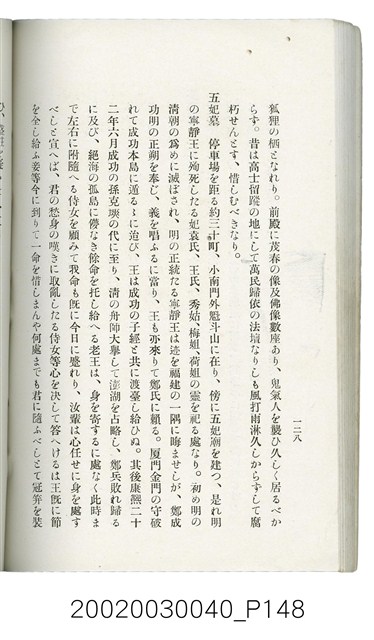 一二八
狐狸の栖となれり。前殿に茂春の像及佛像數座あり、鬼氣人を襲ひ久しく居るべか
らず。昔は高士留蹤の地にして萬民歸依の法壇なりしも風打雨淋久しからずして腐
朽せんとす、惜しむべきなり。
五妃墓 停車場を距る約三十町、小南門外魁斗山に在り、傍に五妃廟を建つ、是れ明
の寧靜王に殉死したる妃袁氏、王氏、秀姑、梅姐、荷姐の靈を祀る處なり。初め明の
清朝の爲めに滅ぼされ、明の正統たる寧靜王は迹を福建の一隅に晦ませしが、鄭成
功明の正朔を奉じ、義を唱ふるに當り、王も亦來りて鄭氏に賴る。厦門金門の守破
れて成功本島に遁るゝに迨び、王は成功の子經と共に渡臺し給ひぬ。其後康熙二十
二年六月成功の孫克塽の代に至り、清の舟師大擧して澎湖を占略し、鄭兵敗れ歸る
に及び、絕海の孤島に儚なき餘命を托し給へる老王は、身を寄するに處なく此時ま
で左右に附隨へる侍女を顧みて我命も既に今日に盡れり、汝輩は心任せに身を處す
べしと宣へば、君の愁身の嘆きに取亂したる侍女等心を決して答へけるは王既に節
を全し給ふ妾等今に到りて一命を惜しまんや何處までも君に隨ふべしとて冠笄を裝
20020030040_P148